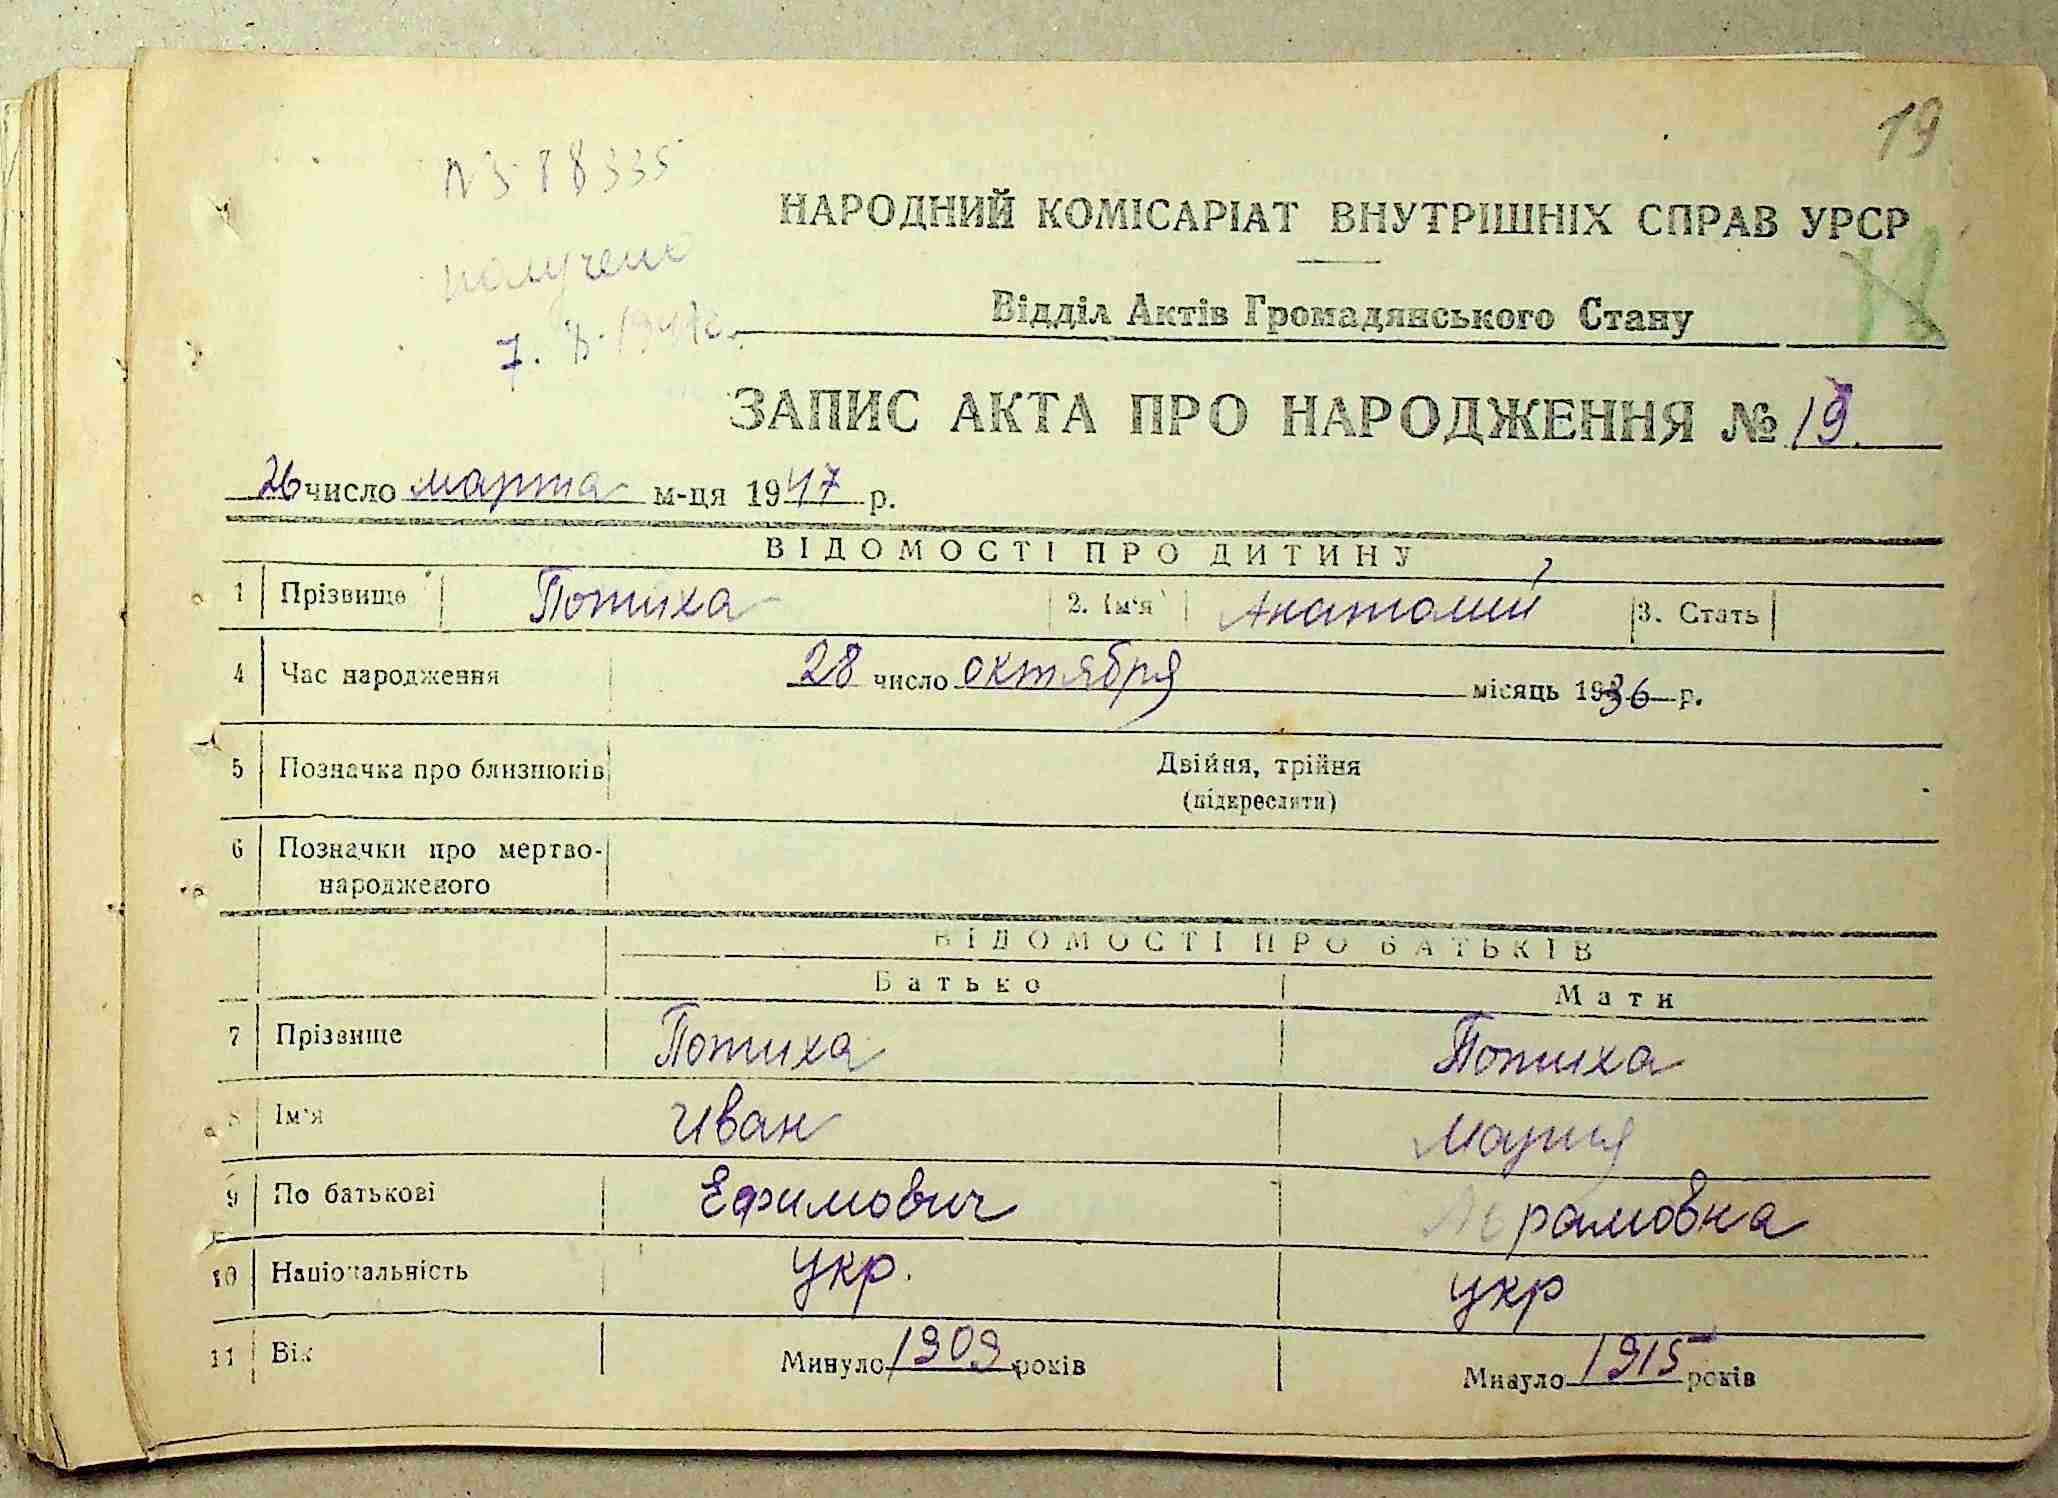 19
88335
получено
7.
НАРОДНИЙ КОМІСАРІАТ ВНУТРІШНІХ СПРАВ УРСР
Відділ Актів Громадянського Стану
ЗАПИС АКТА ПРО НАРОДЖЕННЯ № 19.
26 число марта м-ця 1947 р.
ВІДОМОСТІ ПРО ДИТИНУ
1 Прізвище Потиха 2. Ім'я Анатолий 3. Стать
4 Час народження 28 число октября місяць 1936 р.
5 Позначка про близнюків Двійня, трійня
(підкреслити)
6 Позначки про мертво-
народженого
ВІДОМОСТІ ПРО БАТЬКІВ
Батько Мати
7 Прізвище Потиха Потиха
8 Ім'я Иван Мария
9 По батькові Ефимович
10 Національність укр. укр
11 Вік Минуло 1909 років Минуло 1915 років